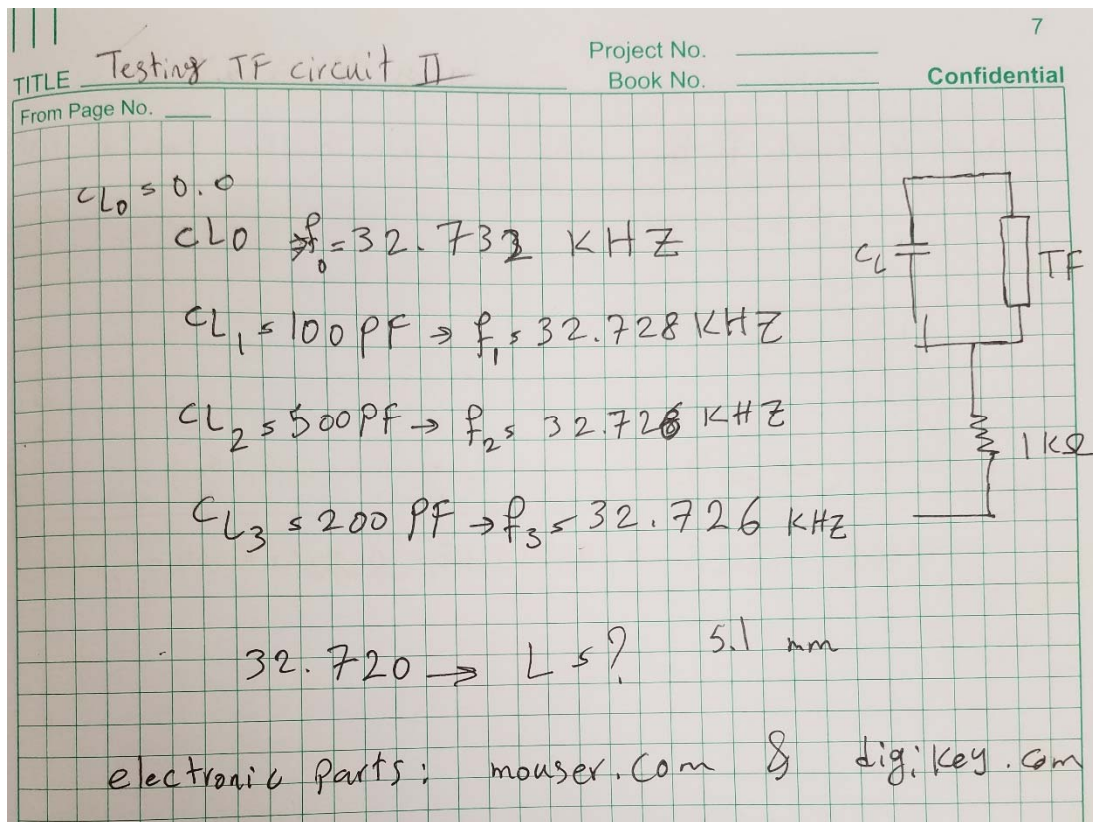 7
Project No.
TITLE Testing TF circuit II
Book No.
Confidential
From Page No.
CL0 = 0.0
CL0 → f0 = 32.732 KHZ
CL TF
CL1 = 100 PF → f1 = 32.728 KHZ
CL2 = 500 PF → f2 = 32.726 KHZ
1 KΩ
CL3 = 200 PF → f3 = 32.726 KHZ
32.720 → L = ? 5.1 mm
electronic parts: mouser.com & digikey.com